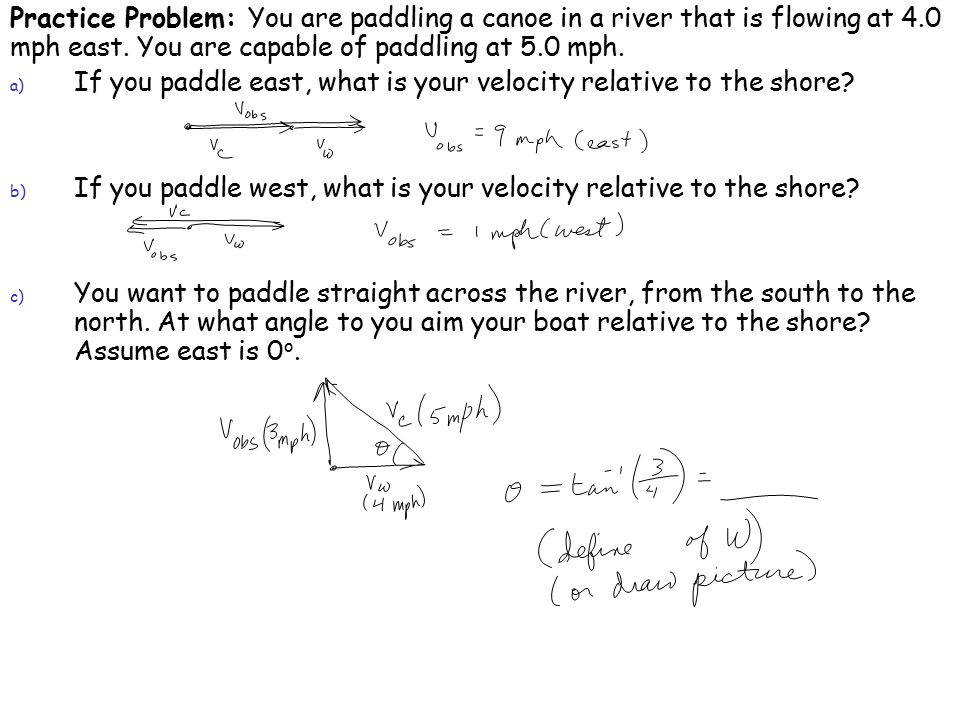 Practice Problem: You are paddling a canoe in a river that is flowing at 4.0
mph east. You are capable of paddling at 5.0 mph.
a) If you paddle east, what is your velocity relative to the shore?
Vobs
Vc Vw
Vobs = 9 mph (east)
b) If you paddle west, what is your velocity relative to the shore?
Vc
Vobs Vw
Vobs = 1 mph (west)
c) You want to paddle straight across the river, from the south to the
north. At what angle to you aim your boat relative to the shore?
Assume east is 0°.
Vobs (3mph)
Vc (5mph)
θ
Vw
(4 mph)
θ = tan⁻¹ (3/4) = ____
(define of W)
(or draw picture)